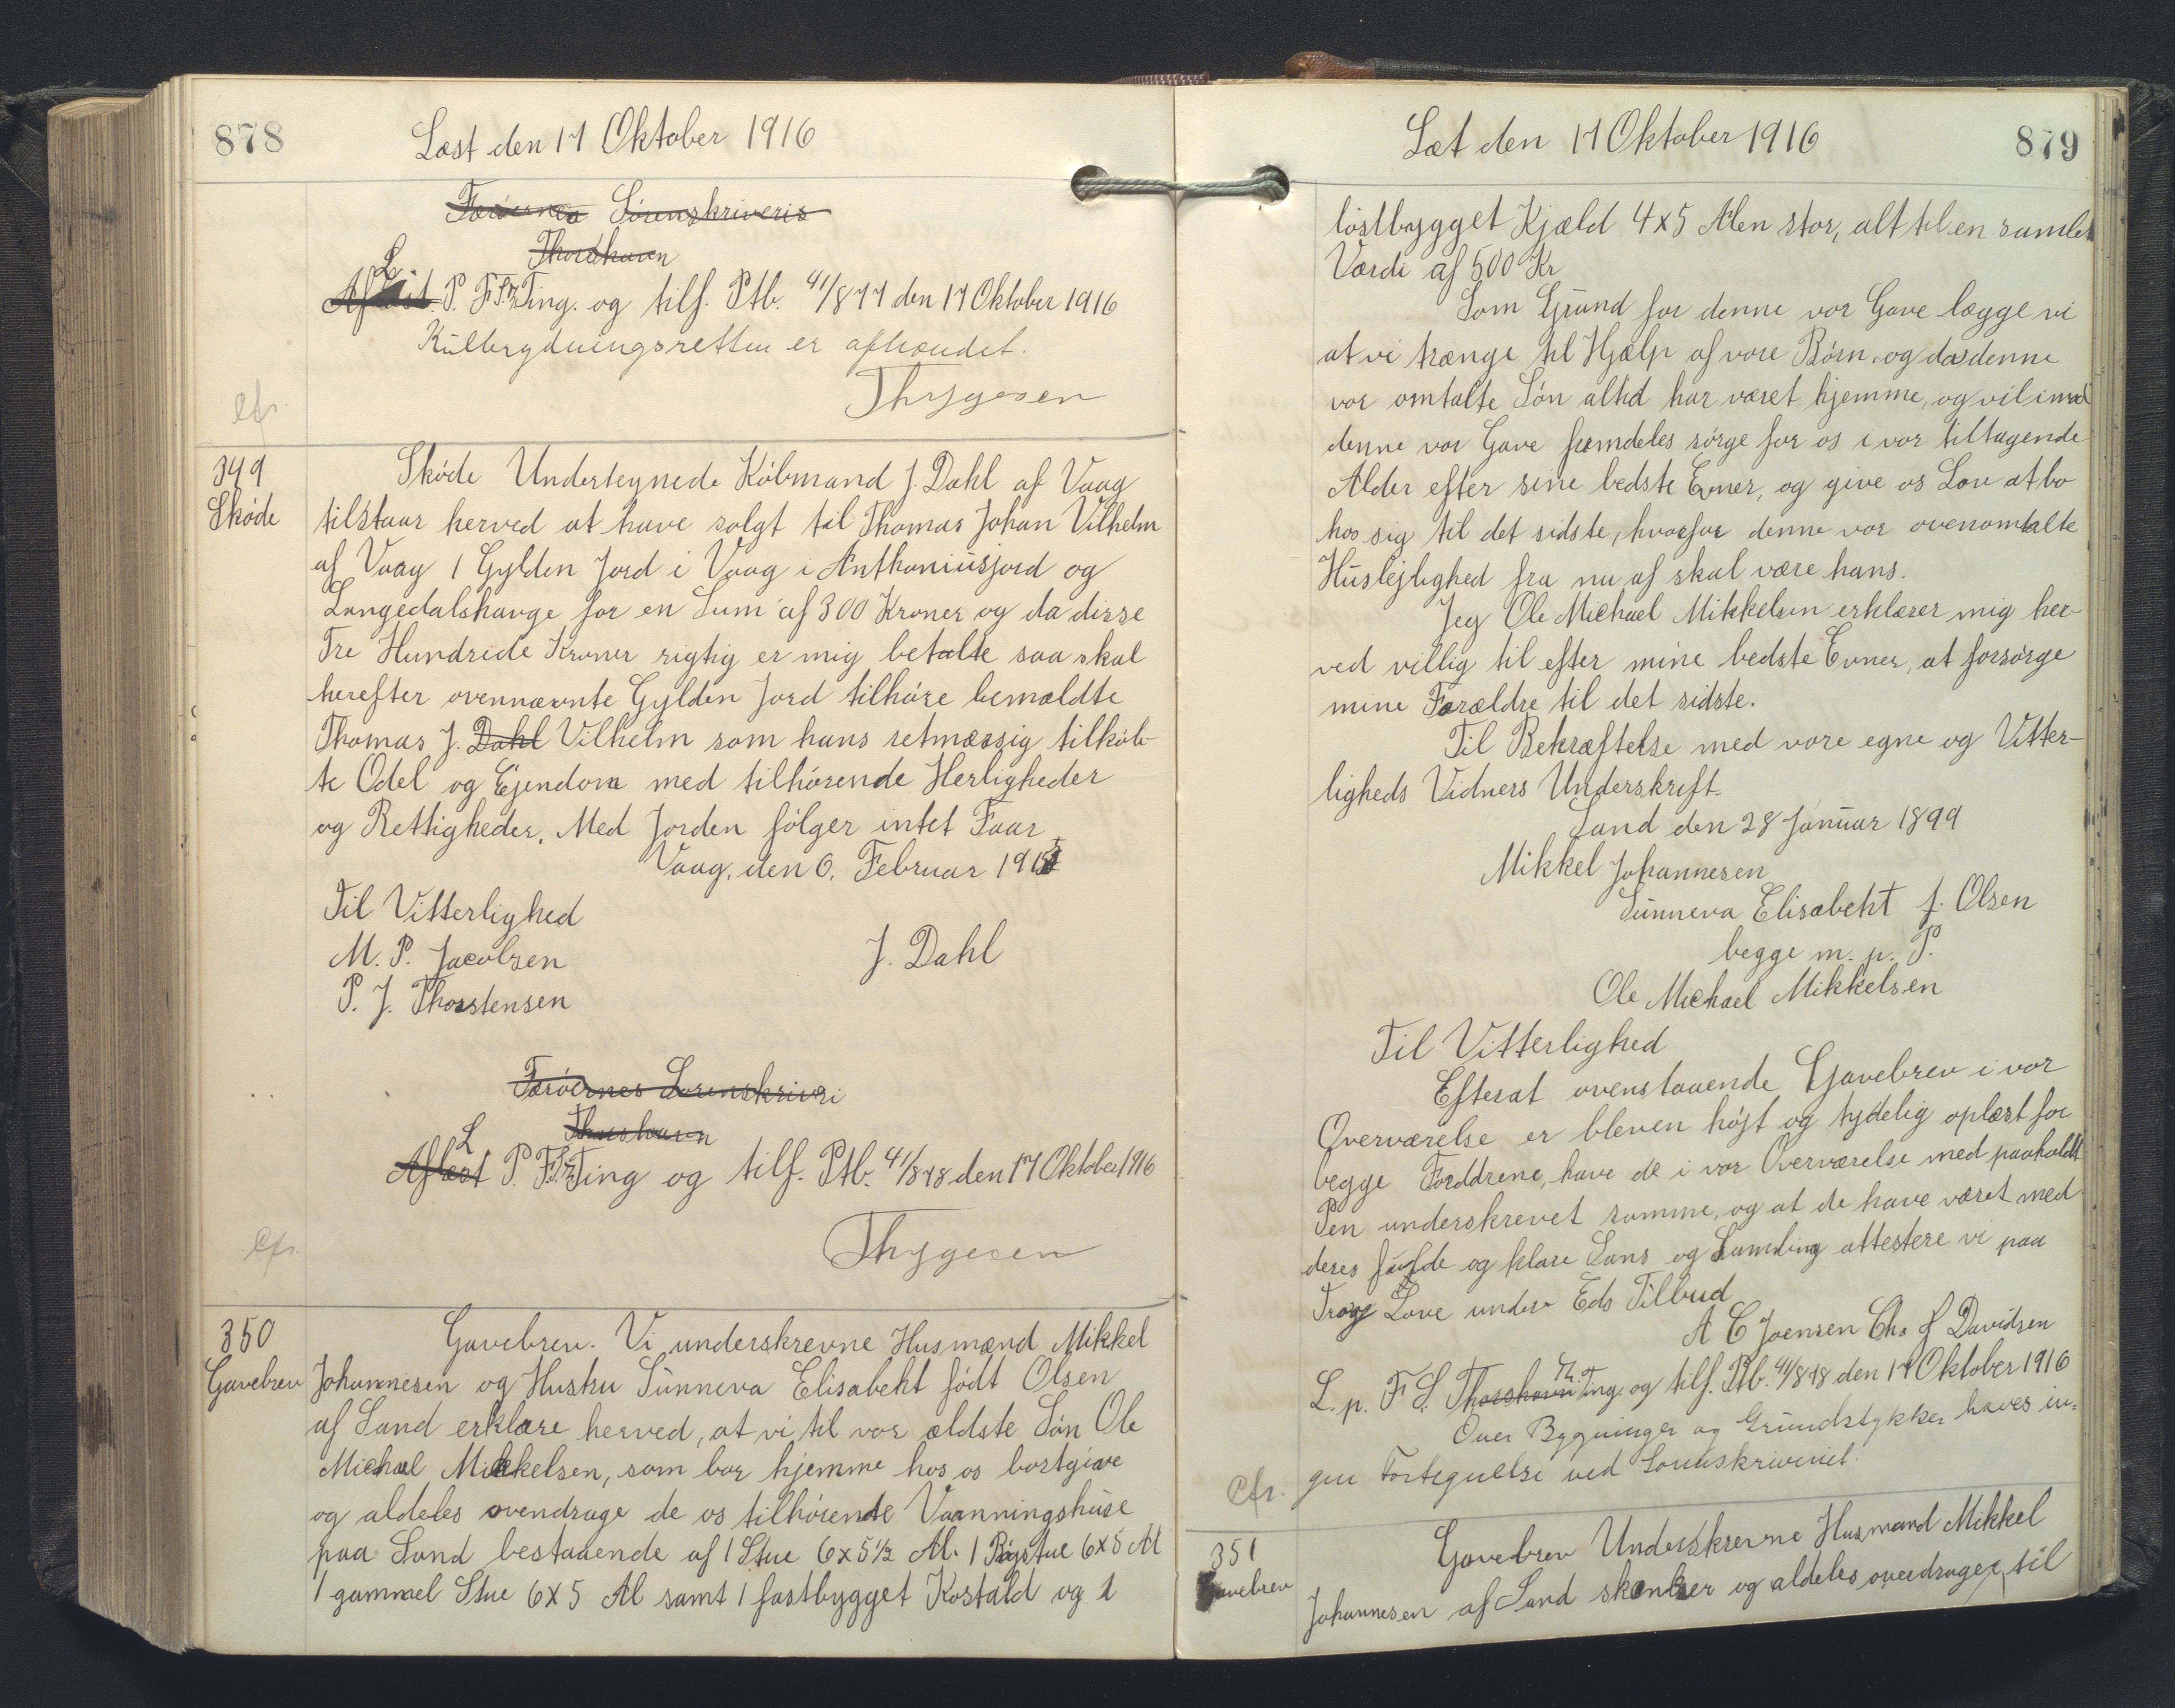 878
Læst den 17 Oktober 1916
Færøernes Sorenskriveris
Thorshavn
L
Aflæst P. F. S. Ting. og tilf. Ptb. 41/877 den 17 Oktober 1916
Kulbrydningsretten er afhændet.
Thygesen
cfr.
349
Skøde
Skøde Undertegnede Købmand J. Dahl af Vaag
tilstaar herved at have solgt til Thomas Johan Vilhelm
af Vaag 1 Gylden Jord i Vaag i Anthoniusjord og
Langedalshauge for en Sum af 300 Kroner og da disse
Tre Hundrede Kroner rigtig er mig betalte saa skal
herefter ovennævnte Gylden Jord tilhøre bemældte
Thomas J. Dahl Vilhelm som hans retmæssig tilkøb-
te Odel og Ejendom med tilhørende Herligheder
og Rettigheder. Med Jorden følger intet Faar
Vaag, den 6. Februar 1915
Til Vitterlighed
M. P. Jacobsen
J. Dahl
P. J. Thorstensen
Færøernes Sorenskriveri
Thorshavn
L
Aflæst P. F. S. Ting og tilf. Ptb. 41/878 den 17 Oktober 1916
Thygesen
cfr.
350
Gavebrev
Gavebrev. Vi underskrevne Husmænd Mikkel
Johannesen og Hustru Sunneva Elisabeht født Olsen
af Sand erklære herved, at vi til vor ældste Søn Ole
Michael Mikkelsen, som bor hjemme hos os bortgive
og aldeles ovendrage de os tilhørende Vaanningshuse
paa Sand bestaaende af 1 Stue 6x5½ Al. 1 Røgstue 6x5 Al
1 gammel Stue 6x5 Al samt 1 fastbygget Kostald og 1
Læt den 17 Oktober 1916
879
løstbygget Kjæld 4x5 Alen stor, alt til en samlet
Værdi af 500 Kr
Som Grund for denne vor Gave lægge vi
at vi trænge til Hjælp af vore Børn, og da denne
vor omtalte Søn altid har været hjemme, og vil imod
denne vor Gave fremdeles sørge for os i vor tiltagende
Alder efter sine bedste Evner, og give os Lov at bo
hos sig til det sidste, hvorfor denne vor ovenomtalte
Huslejlighed fra nu af skal være hans.
Jeg Ole Michael Mikkelsen erklærer mig her-
ved villig til efter mine bedste Evner, at forsørge
mine Forældre til det sidste.
Til Bekræftelse med vore egne og Vitter-
ligheds Vidners Underskrift.
Sand den 28 Januar 1899
Mikkel Johannesen
Sunneva Elisabeht f. Olsen
begge m. p. P.
Ole Michael Mikkelsen
Til Vitterlighed
Efterat ovenstaaende Gavebrev i vor
Overværelse er bleven højt og tydelig oplæst for
begge Forældrene, have de i vor Overværelse med paaholdt
Pen underskrevet samme, og at de have været med
deres fulde og klare Sans og Samling attestere vi paa
Tro og Love under Eds Tilbud
A C Joensen Chr J Davidsen
L. p. F S. Thorshavn Th. Ting. og tilf. Ptb. 41/878 den 17 Oktober 1916
Over Bygninger og Grundstykker haves in-
gen Fortegnelse ved Sorenskriveriet.
cfr.
351
Gavebrev
Gavebrev Underskrevne Husmand Mikkel
Johannesen af Sand skenker og aldeles overdrager til